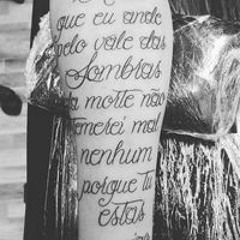 que eu ande
pelo vale das
Sombras
da morte não
temerei mal
nenhum
porque tu
estas